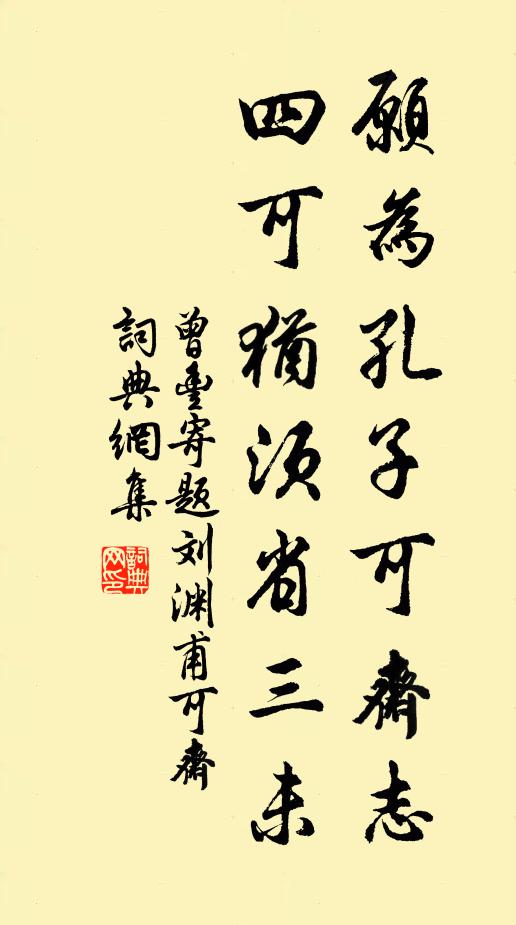 願為孔子可齋志
四可猶須省三未
曾豊寄題刘渊甫可齋
詞典網集
詞典
网印